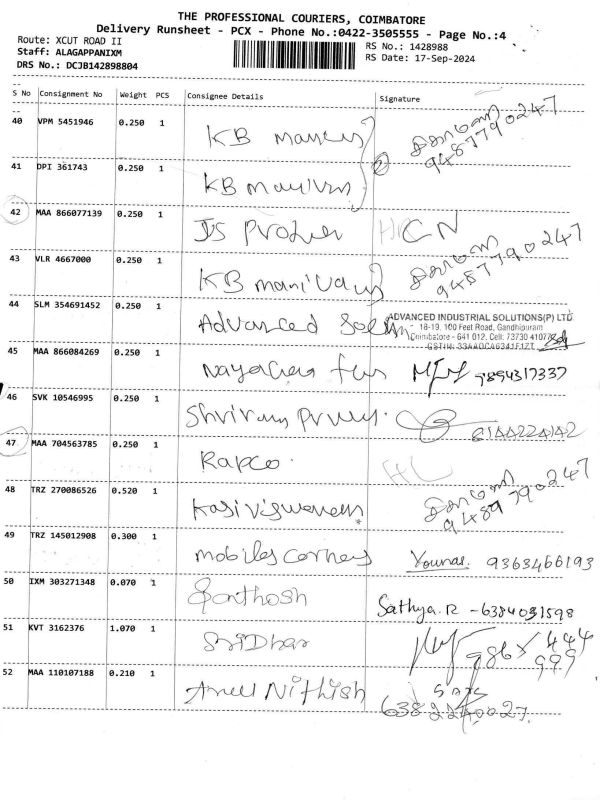 THE PROFESSIONAL COURIERS, COIMBATORE
Delivery Runsheet - PCX - Phone No.:0422-3505555 - Page No.:4
Route: XCUT ROAD II
RS No.: 1428988
Staff: ALAGAPPANIXM
RS Date: 17-Sep-2024
DRS No.: DCJB142898804
S No Consignment No Weight PCS Consignee Details Signature
40 VPM 5451946 0.250 1 KB
9487790247
41 DPI 361743 0.250 1 KB
42 MAA 866077139 0.250 1 CN
43 VLR 4667000 0.250 1 KB
9487790247
44 SLM 354691452 0.250 1 Advanced
ADVANCED INDUSTRIAL SOLUTIONS(P) LTD
18-19, 100 Feet Road, Gandhipuram
Coimbatore - 641 012. Cell: 73730
45 MAA 866084269 0.250 1 9894317337
46 SVK 10546995 0.250 1
47 MAA 704563785 0.250 1 Rapco.
48 TRZ 270086526 0.520 1
49 TRZ 145012908 0.300 1 Mobiles Younas. 9363466193
50 IXM 303271348 0.070 1 Santhosh Sathya.R - 6384031598
51 KVT 3162376 1.070 1 SriDhar
52 MAA 110107188 0.210 1 Nithish